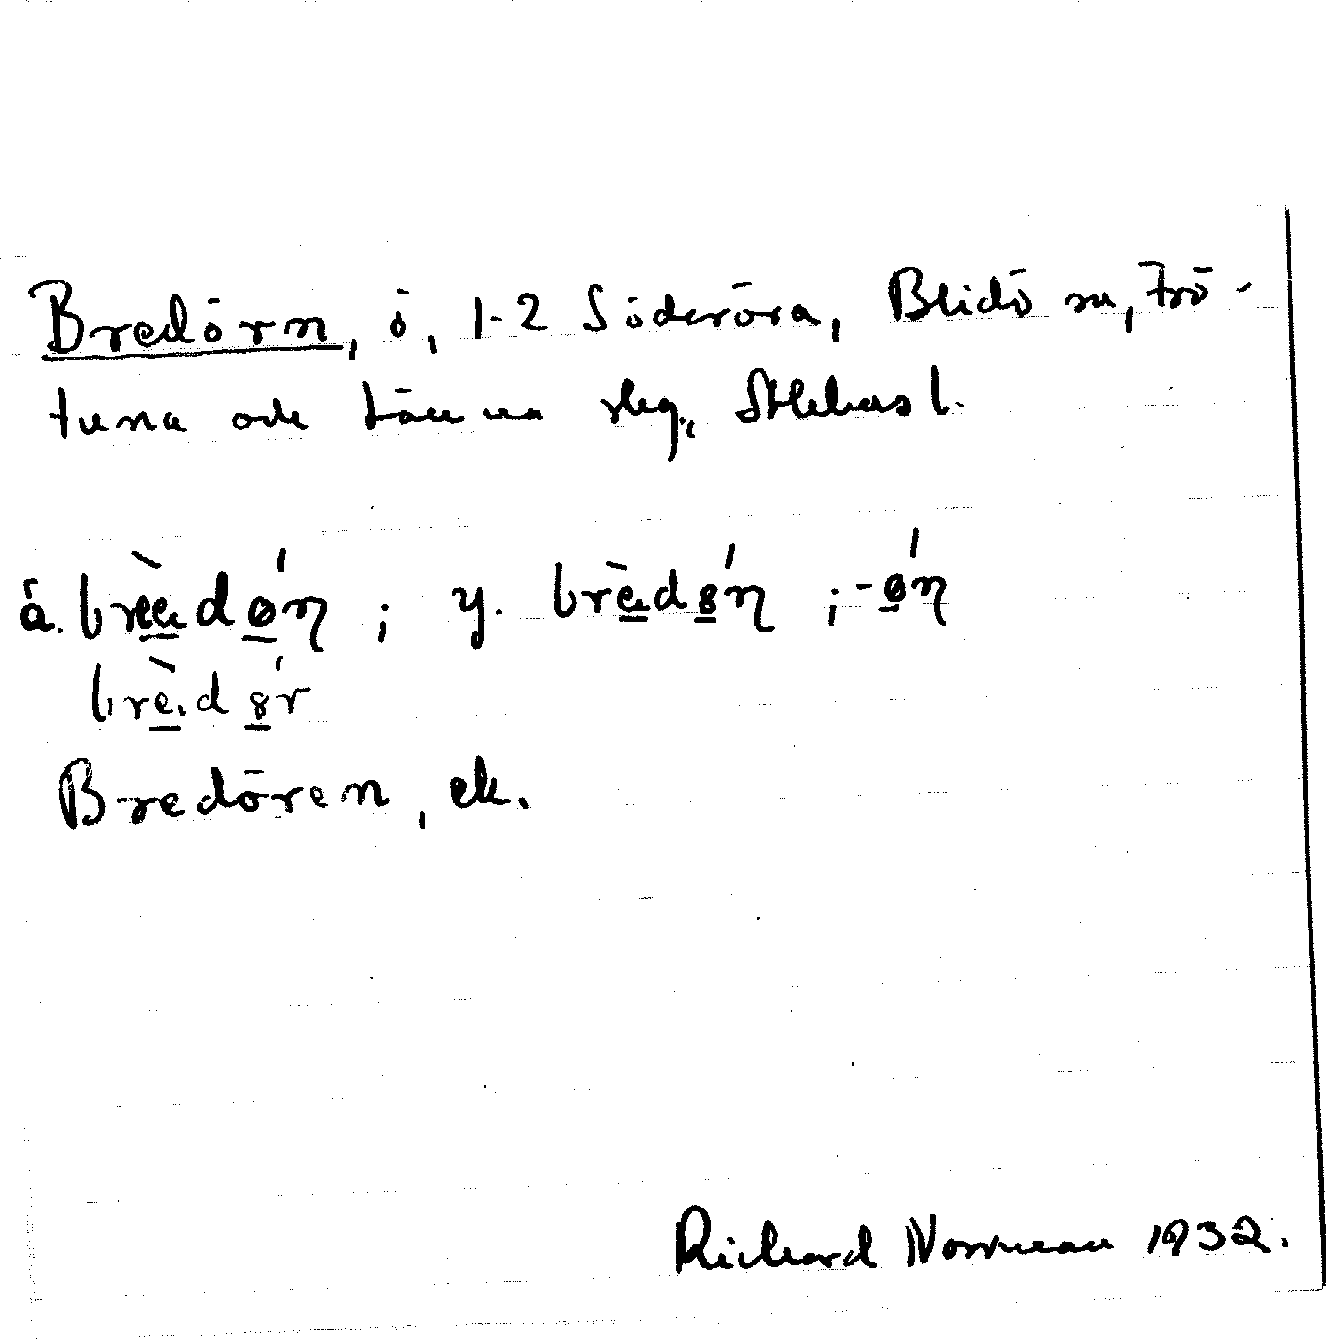 Bredörn, ö, 1-2 Söderöra, Blidö sn, Frö-
tuna och Länna skg, Sthlms l.
ä. brèːdǿn ; y. brèːd8́n ; -ǿn
brèːd8́r
Bredören, ek.
Richard Norrman 1932.